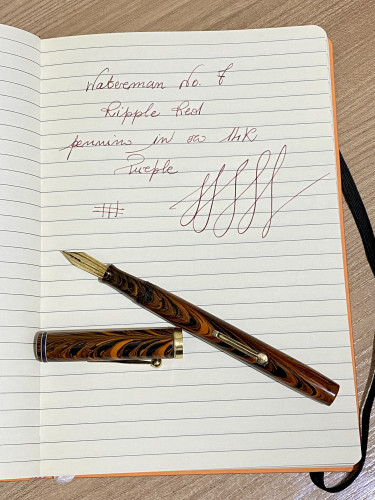 Waterman No. 7
Ripple Red
pennino in oro 14K
Purple